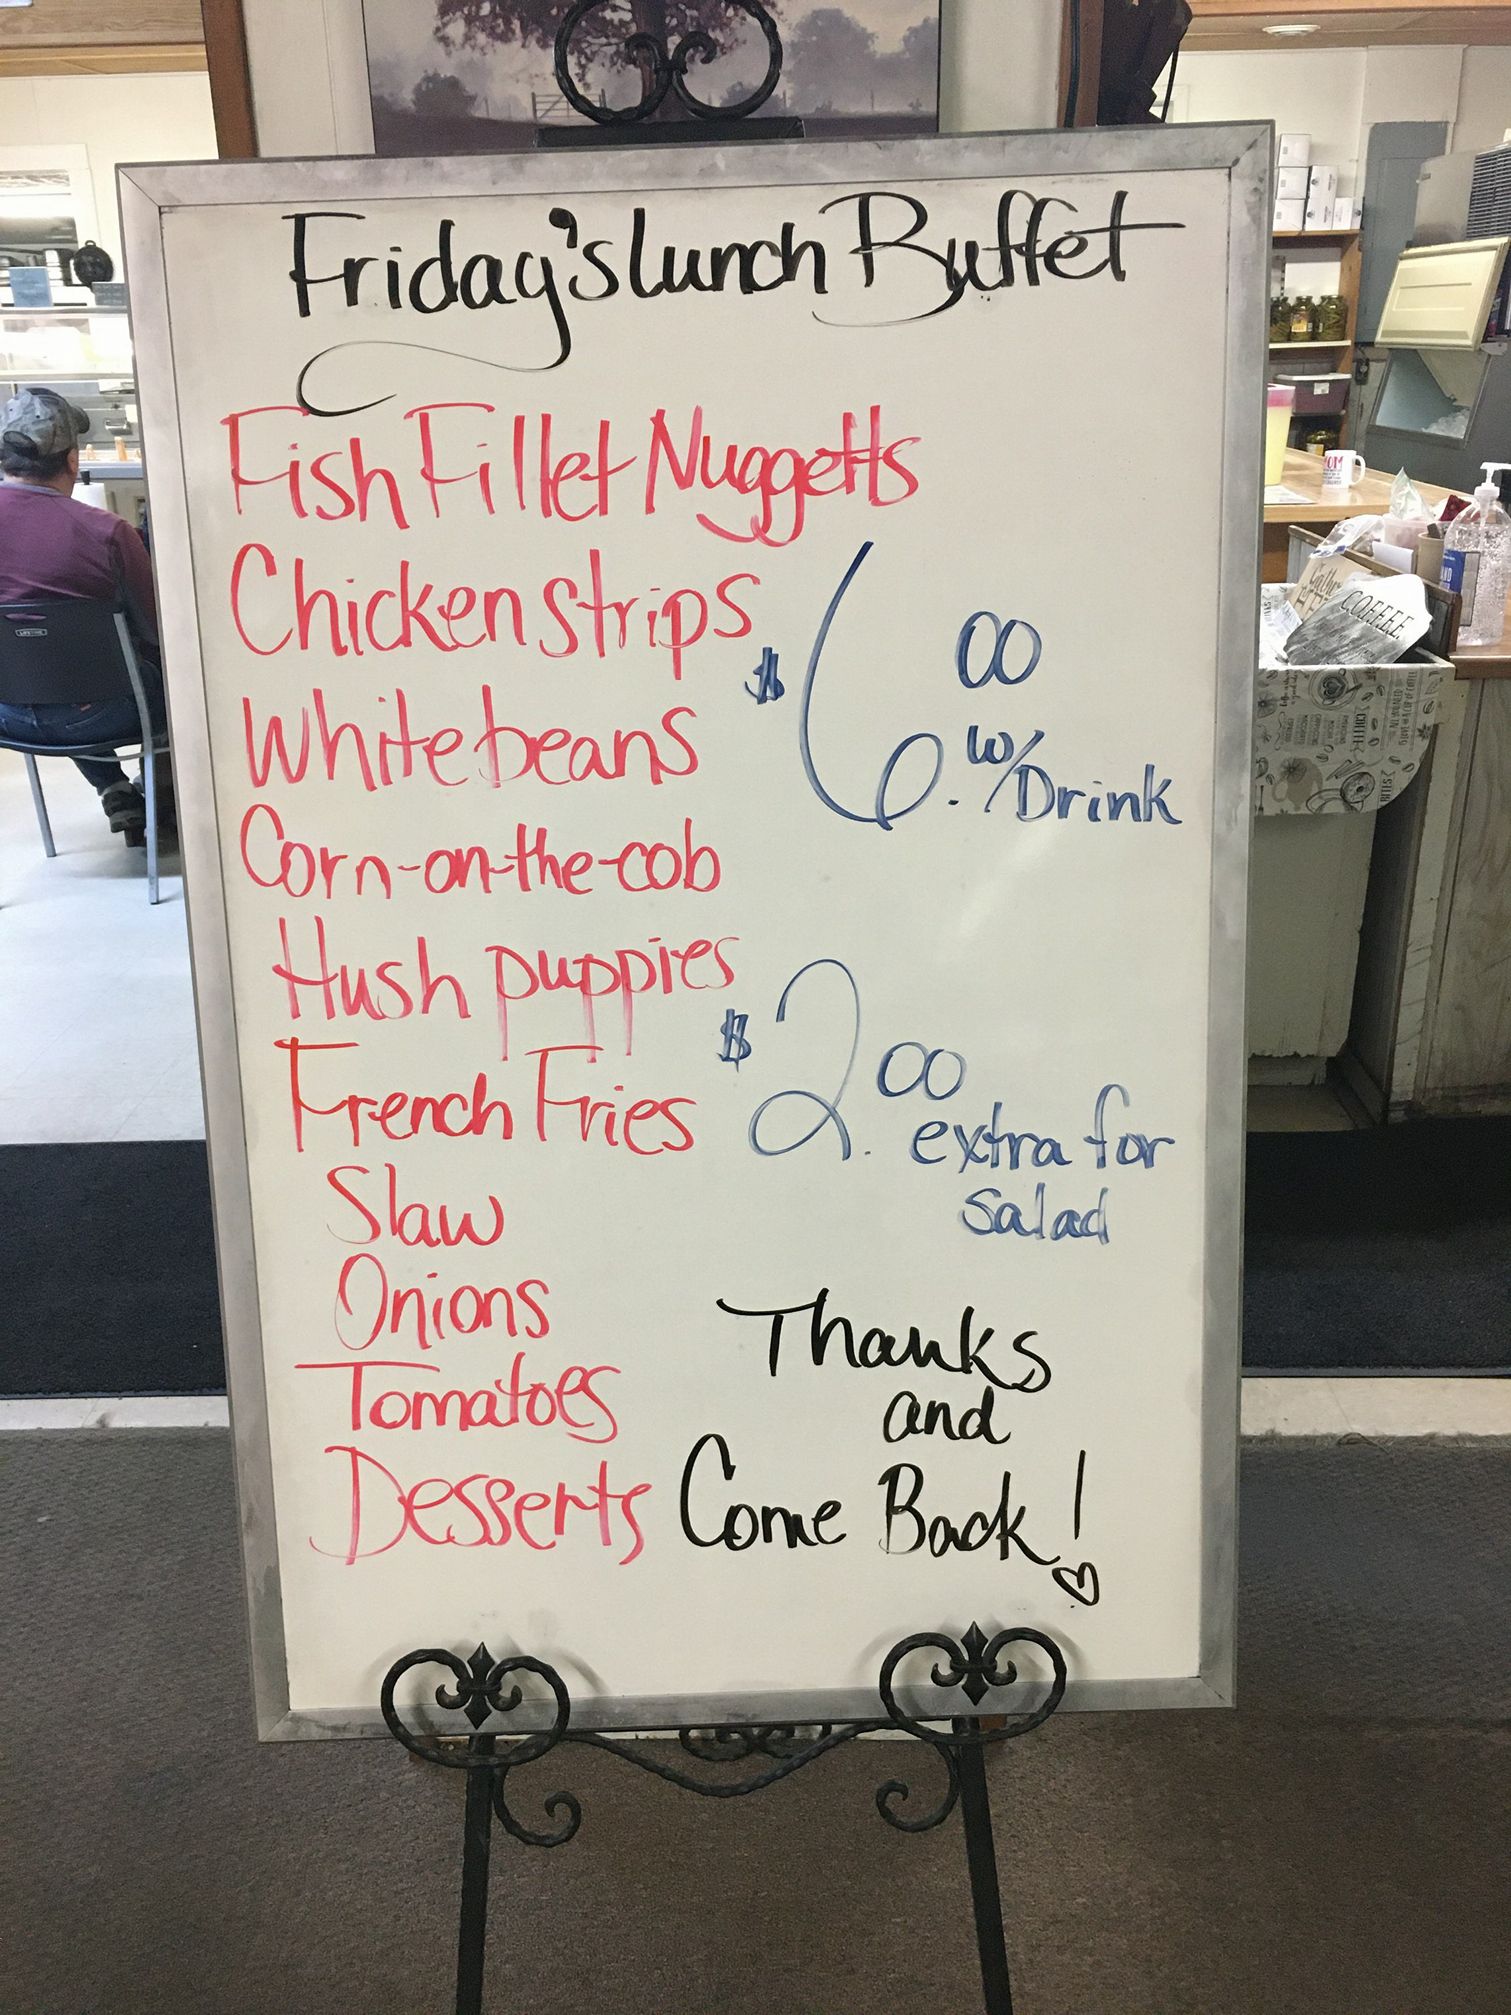 Friday's lunch Buffet
Fish Fillet Nuggetts
Chicken strips
White beans
Corn-on-the-cob
Hush puppies
French Fries
Slaw
Onions
Tomatoes
Desserts
$6.00
w/Drink
$2.00
extra for
salad
Thanks
and
Come Back!
C.O.F.F.E.E.
COFFEE
LIFETIME